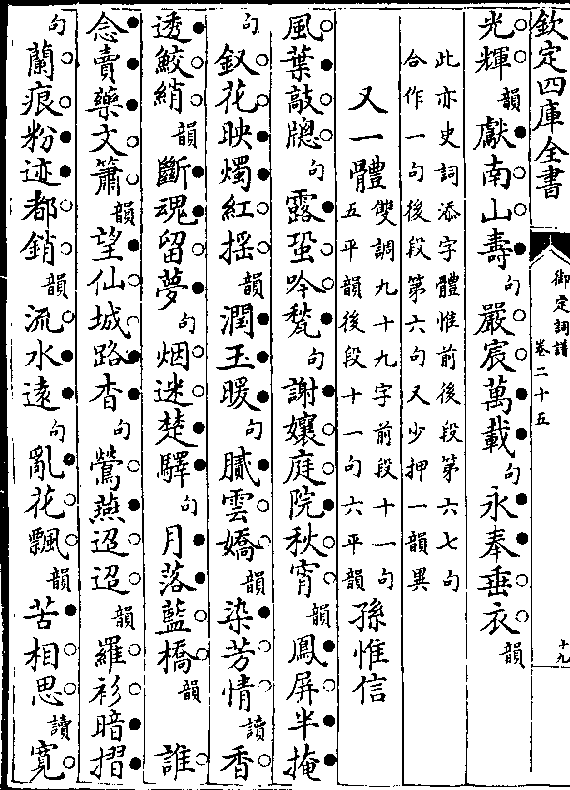 欽定四庫全書
御定詞譜 卷二十五
十九
光輝韻獻南山壽句嚴宸萬載句永奉垂衣韻
此亦史詞添字體惟前後段第六七句
合作一句後段第六句又少押一韻異
又一體 雙調九十九字前段十一句五平韻後段十一句六平韻 孫惟信
風葉敲牕句露蛩吟甃句謝孃庭院秋宵韻鳳屏半掩
句釵花映燭紅揺韻潤玉暖句膩雲嬌韻染芳情讀香
透鮫綃韻斷魂留夢句烟迷楚驛句月落藍橋韻 誰
念賣藥文簫韻望仙城路杳句鶯燕迢迢韻羅衫暗摺
句蘭痕粉迹都銷韻流水遠句亂花飄韻苦相思讀寛